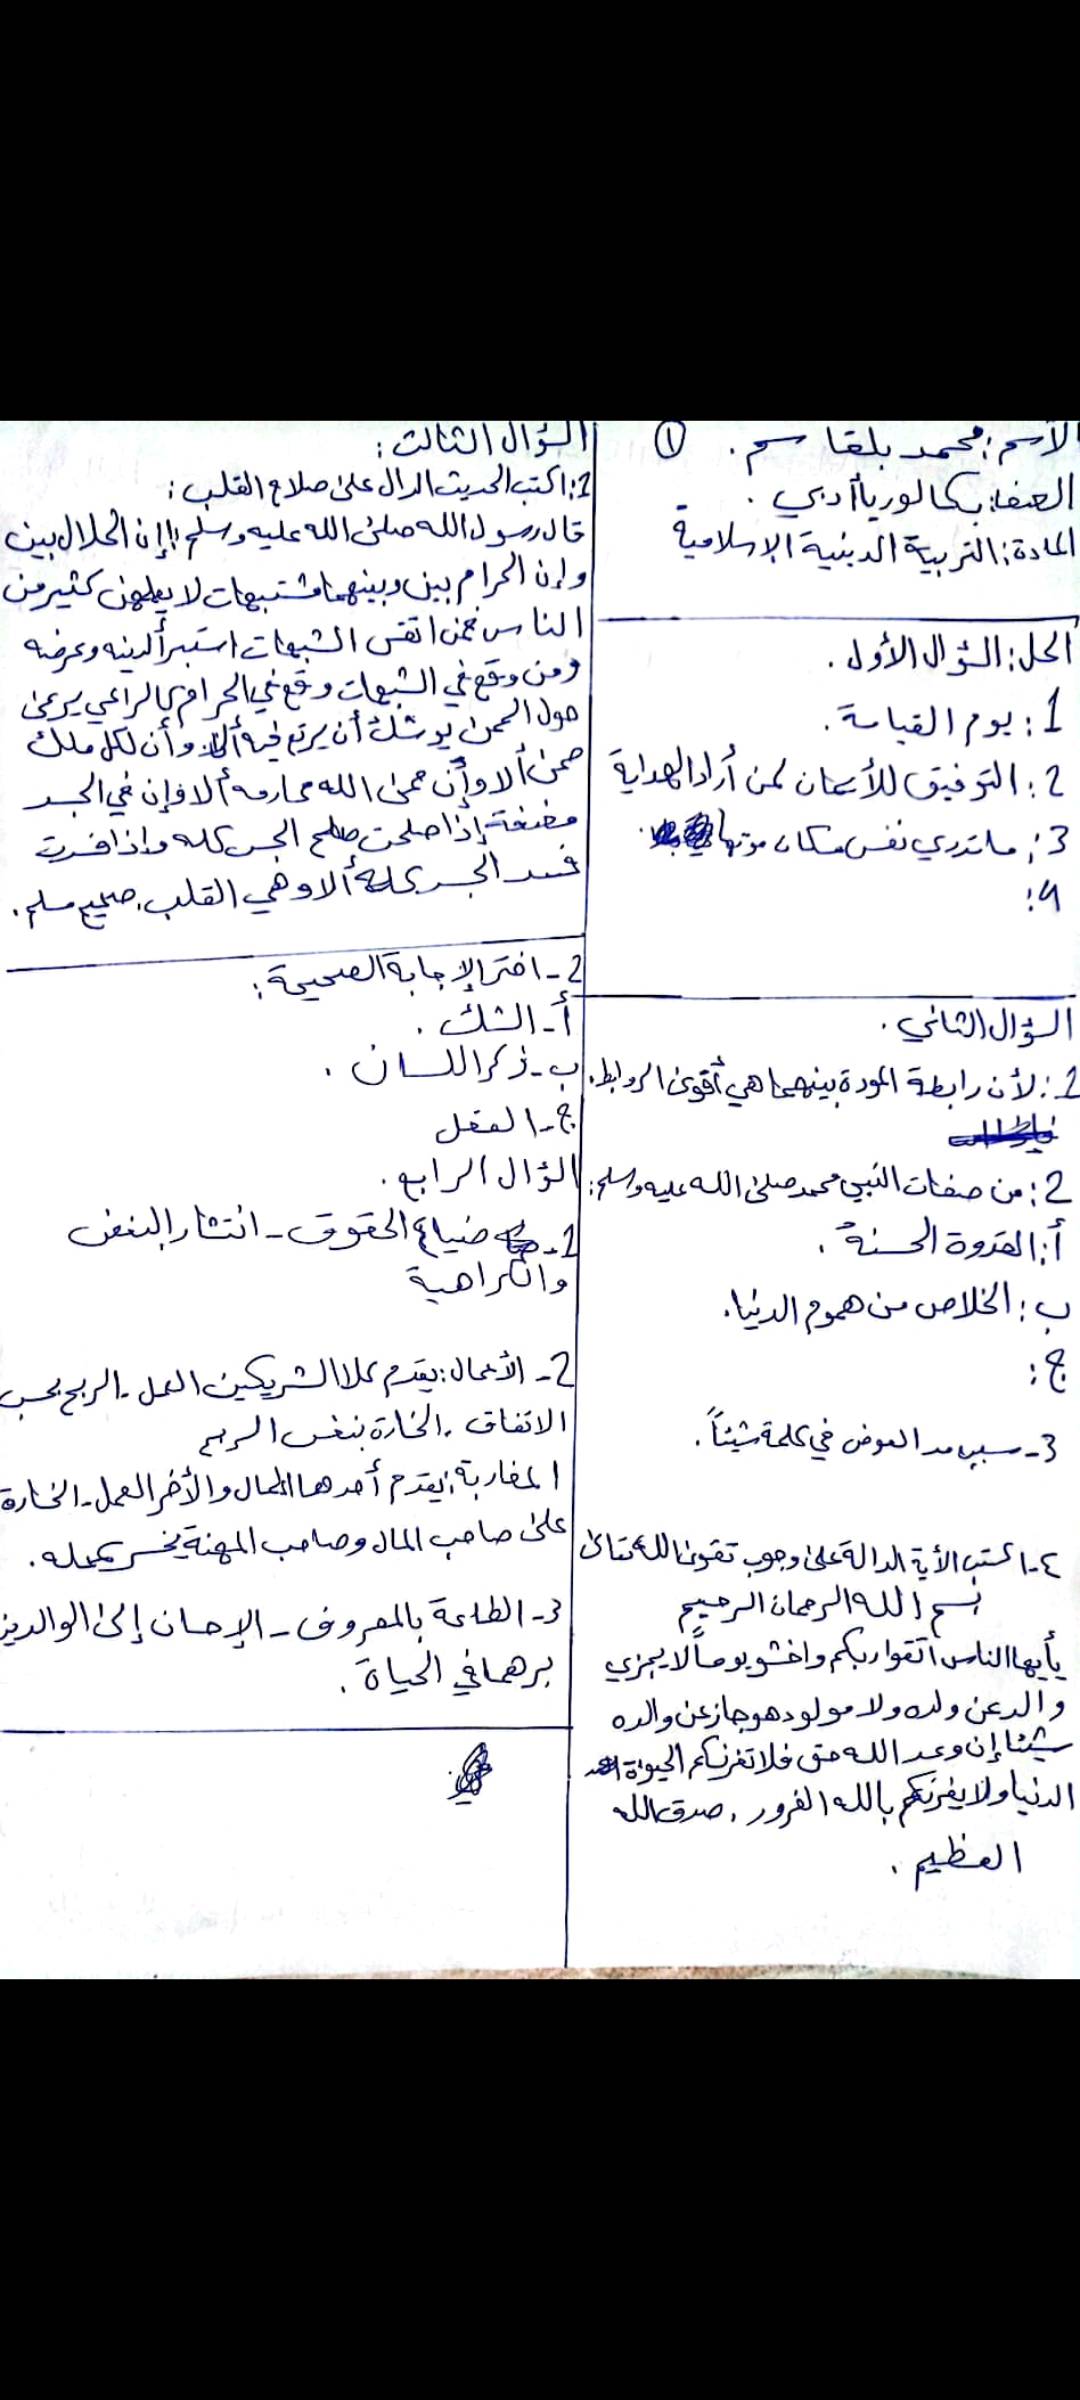 الاسم: محمد بلقاسم. ①
الصف: بكالوريا أدبي.
المادة: التربية الدينية الإسلامية
الحل: السؤال الأول.
1: يوم القيامة.
2: التوفيق للأيمان لمن أراد الهداية
3: ماتدري نفس مكان موتها
4:
السؤال الثاني.
1: لأن رابطة المودة بينهما هي أقوى الروابط.
2: من صفات النبي محمد صلى الله عليه وسلم:
أ: القدوة الحسنة.
ب: الخلاص من هموم الدنيا.
ج:
3- سبب مد العوض في كلمة شيئاً.
٤- اكتب الأية الدالة على وجوب تقوى الله تعالى
بسم الله الرحمان الرحيم
يأيها الناس اتقوا ربكم واخشو يوماً لا يجزي
والد عن ولده ولا مولود هو جاز عن والده
شيئا إن وعد الله حق فلا تغرنكم الحيوة
الدنيا ولا يغرنكم بالله الغرور. صدق الله
العظيم.
السؤال الثالث:
1: اكتب الحديث الدال على صلاح القلب:
قال رسول الله صلى الله عليه وسلم: إن الحلال بين
وإن الحرام بين وبينهما مشتبهات لا يعلمهن كثير من
الناس فمن اتقى الشبهات استبرأ لدينه وعرضه
ومن وقع في الشبهات وقع في الحرام كالراعي يرعى
حول الحمى يوشك أن يرتع فيه ألا وأن لكل ملك
حمى ألا وأن حمى الله محارمه ألا فإن في الجسد
مضغة إذا صلحت صلح الجسد كله وإذا فسدت
فسد الجسد كله ألا وهي القلب. صحيح مسلم.
2- اختر الإجابة الصحيحة:
أ- الشك.
ب- ذكر اللسان.
ج- العقل
السؤال الرابع.
1- ضياع الحقوق - انتشار البغض
والكراهية
2- الأعمال: يقدم كلا الشريكين العمل - الربح بحسب
الاتفاق. الخسارة بنفس الربح
المضاربة: يقدم أحدهما المال والأخر العمل - الخسارة
على صاحب المال وصاحب المهنة يخسر عمله.
3- الطاعة بالمعروف - الإحسان إلى الوالدين
برهما في الحياة.